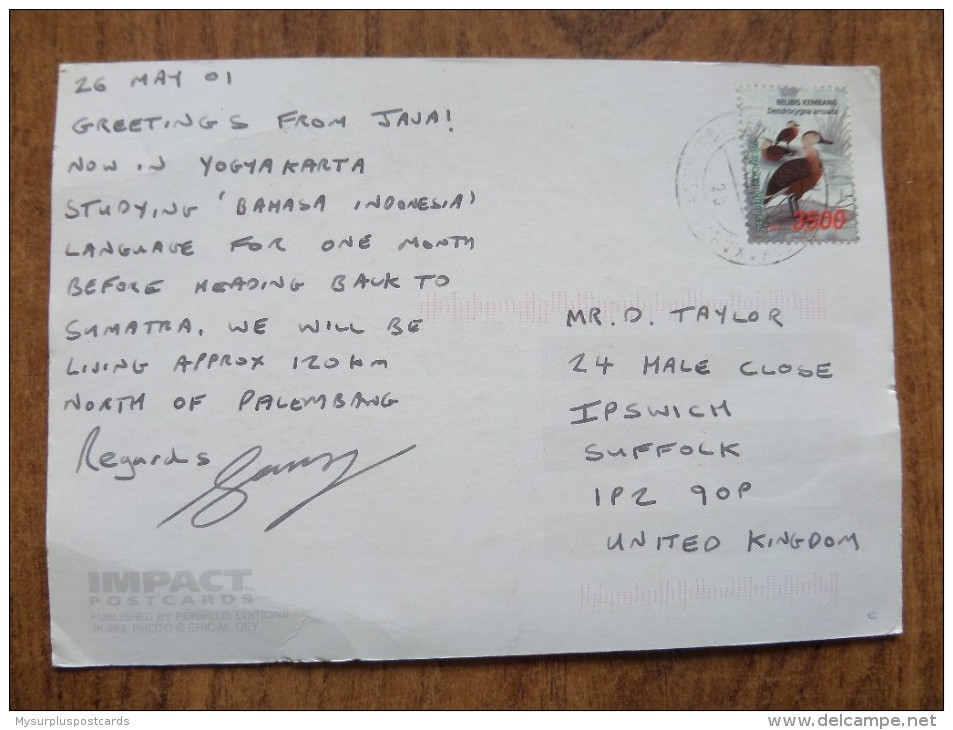 26 MAY 01
GREETINGS FROM JAVA!
NOW IN YOGYAKARTA
STUDYING 'BAHASA INDONESIA'
LANGUAGE FOR ONE MONTH
BEFORE HEADING BACK TO
SUMATRA. WE WILL BE
LIVING APPROX 120 km
NORTH OF PALEMBANG
Regards
BELIBIS KEMBANG
Dendrocygna arcuata
3500
MR. D. TAYLOR
24 MALE CLOSE
IPSWICH
SUFFOLK
IP2 9OP
UNITED KINGDOM
IMPACT
POSTCARDS
PUBLISHED BY PERIPLUS EDITIONS
PHOTO © ERIC M. OEY
Mysurpluspostcards
www.delcampe.net